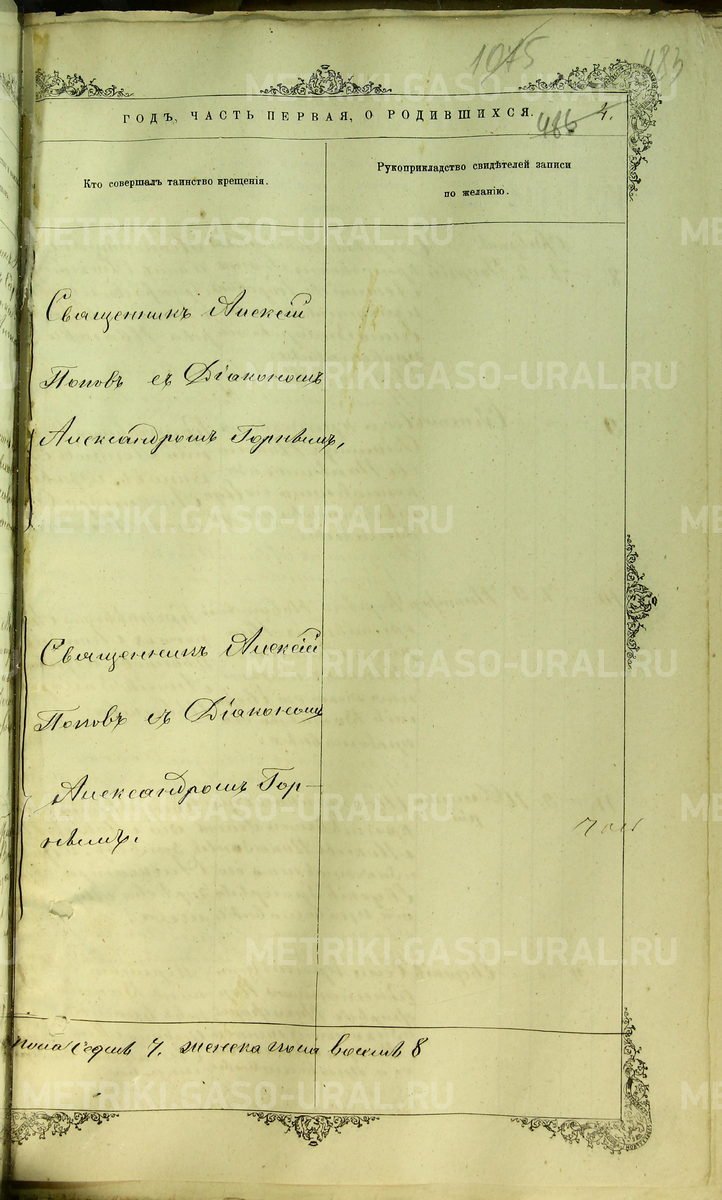 1075
483
ГОДЪ, ЧАСТЬ ПЕРВАЯ, О РОДИВШИХСЯ.
486 4.
Кто совершалъ таинство крещенія.
Рукоприкладство свидѣтелей записи
по желанію.
Священникъ Алексій
Поповъ съ Діакономъ
Александромъ Горнымъ,
Священникъ Алексій
Поповъ съ Діакономъ
Александромъ Гор-
нымъ.
пола семь 7, женска пола восемь 8
METRIKI.GASO-URAL.RU